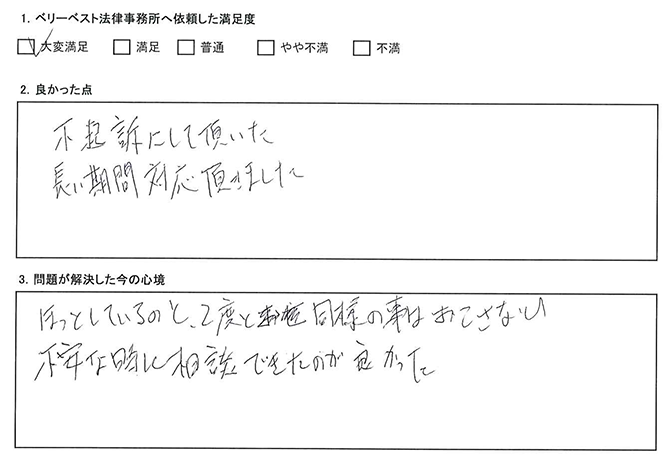 1. ベリーベスト法律事務所へ依頼した満足度
大変満足 満足 普通 やや不満 不満
2. 良かった点
不起訴にして頂いた
長い期間対応頂きました
3. 問題が解決した今の心境
ほっとしているのと、2度と同様の事はおこさない
不安な時に相談できたのが良かった